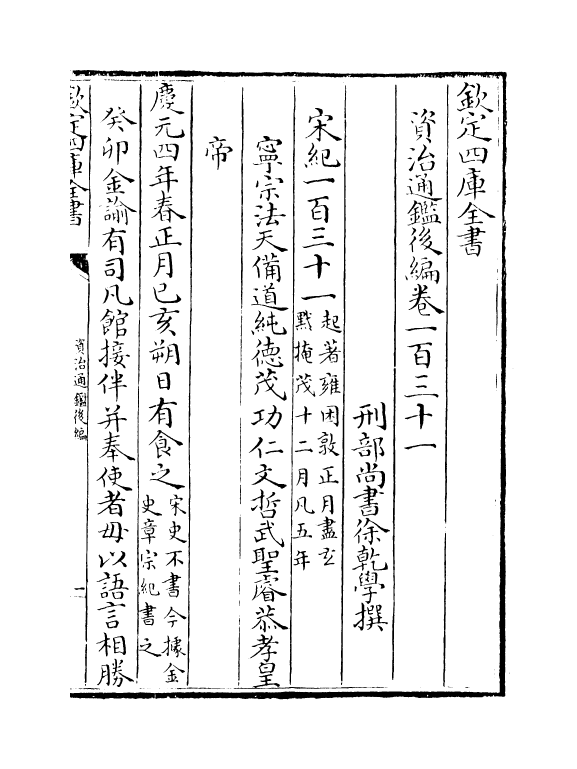 欽定四庫全書
資治通鑑後編卷一百三十一
刑部尚書徐乾學撰
宋紀一百三十一起著雍困敦正月盡玄黓掩茂十二月凡五年
寧宗法天備道純德茂功仁文哲武聖睿恭孝皇
帝
慶元四年春正月已亥朔日有食之宋史不書今據金史章宗紀書之
癸卯金諭有司凡館接伴并奉使者毋以語言相勝
欽定四庫全書
資治通鑑後編
一